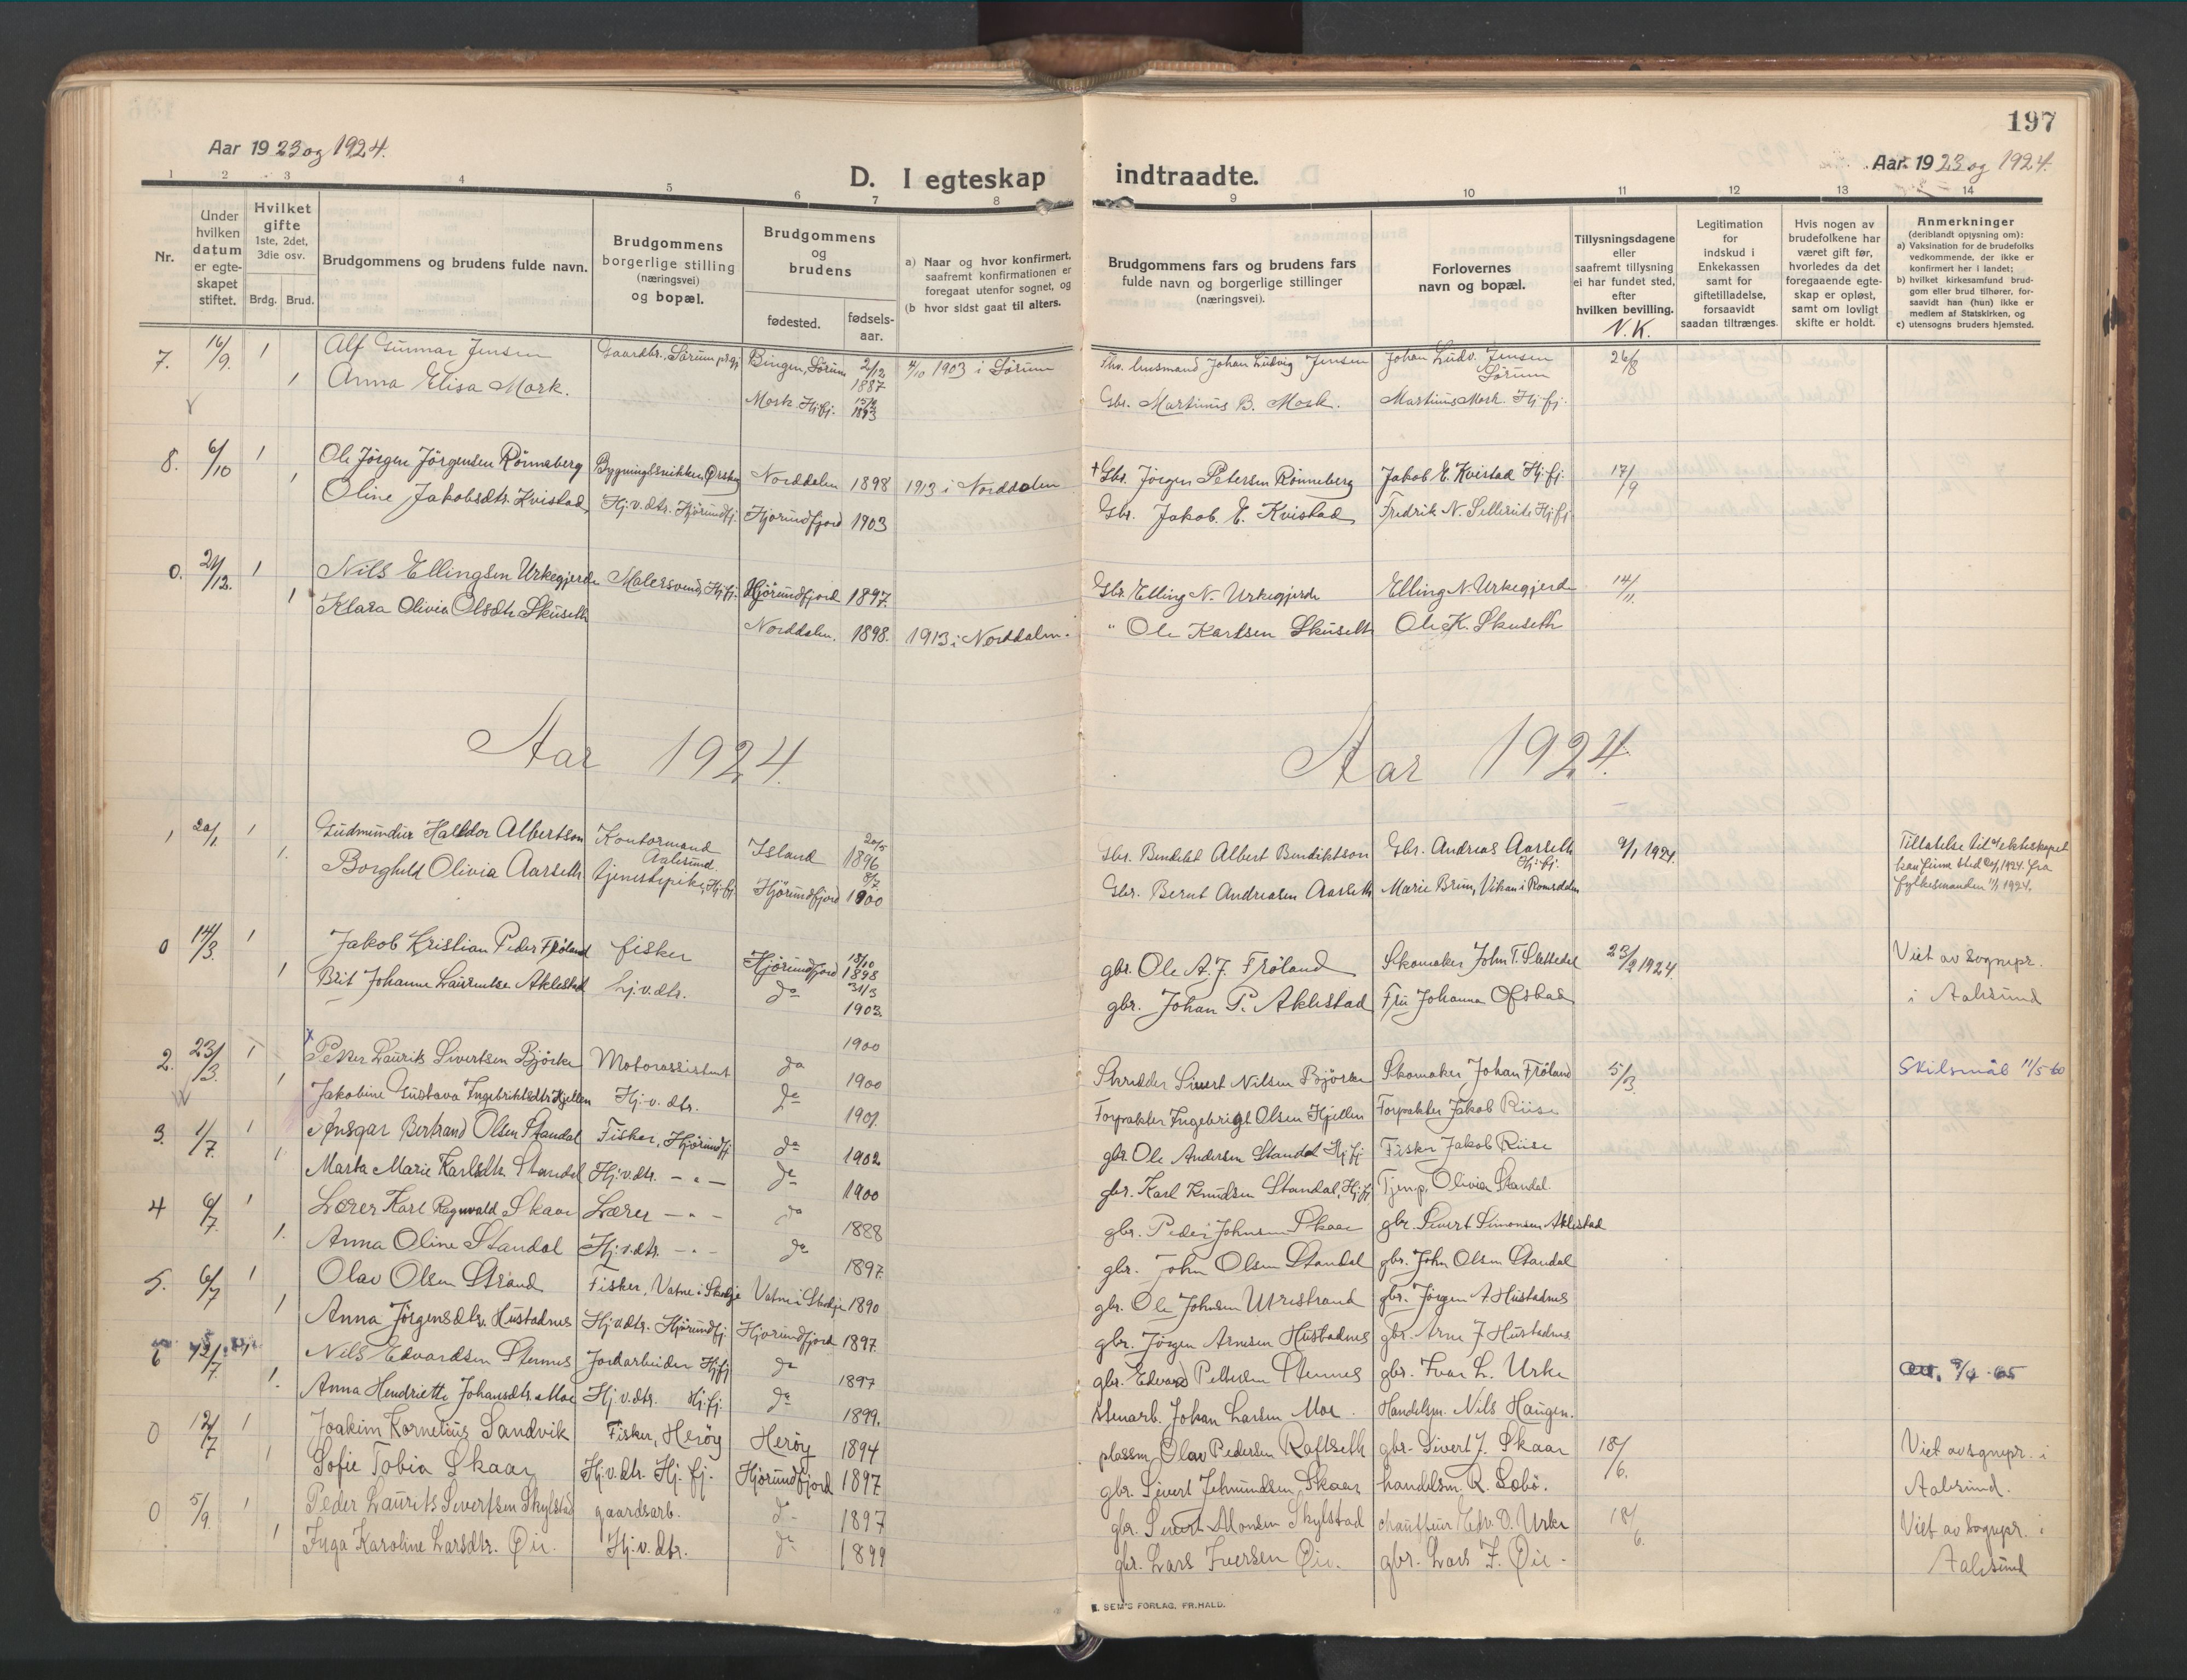 197
Aar 1923 og 1924.
Aar 1923 og 1924.
D. I egteskap indtraadte.
1 2 3 4 5 6 7 8 9 10 11 12 13 14
Nr.
Under hvilken datum er egteskapet stiftet.
Hvilket gifte 1ste, 2det, 3die osv.
Brdg. Brud.
Brudgommens og brudens fulde navn.
Brudgommens borgerlige stilling (næringsvei) og bopæl.
Brudgommens og brudens
fødested. fødselsaar.
a) Naar og hvor konfirmert, saafremt konfirmationen er foregaat utenfor sognet, og
(b hvor sidst gaat til alters.
Brudgommens fars og brudens fars fulde navn og borgerlige stillinger (næringsvei).
Forlovernes navn og bopæl.
Tillysningsdagene eller saafremt tillysning ei har fundet sted, efter hvilken bevilling.
N. K.
Legitimation for indskud i Enkekassen samt for giftetilladelse, forsaavidt saadan tiltrænges.
Hvis nogen av brudefolkene har været gift før, hvorledes da det foregaaende egteskap er opløst, samt om lovligt skifte er holdt.
Anmerkninger (deriblandt opysning om):
a) Vaksination for de brudefolks vedkommende, der ikke er konfirmert her i landet;
b) hvilket kirkesamfund brudgom eller brud tilhører, forsaavidt han (hun) ikke er medlem af Statskirken, og
c) utensogns bruders hjemsted.
7. 16/9. 1 Alf Gunnar Jensen Gaardbr. Sørum Bingen, Sørum 2/12 1887 4/10 1903 i Sørum husmand Johan Ludvig Jensen Johan Ludv. Jensen Sørum 26/8
1 Anna Elisa Mork. Mork. Hj.fj. 1893 Gbr. Martinus B. Mork. Martinus Mork. Hj.fj.
8. 6/10 1 Ole Jörgen Jörgensen Rönneberg Bygningssnikker, Ørskog Norddalen 1898 1913 i Norddalen † Gbr. Jörgen Petersen Rönneberg Jakob E. Kvistad Hj.fj. 17/9
1 Oline Jakobsdtr. Kvistad Hj.v.dtr. Hjörundfj. Hjorundfjord 1903 Gbr. Jakob. E. Kvistad Fredrik N. Hj.fj.
0. 21/12. 1 Nils Ellingsen Urkegjerde Malersvend, Hj.fj. Hjörundfjord 1897. Gbr. Elling N. Urkegjerde Elling N. Urkegjerde 14/11.
1 Klara Olivia Olsdtr Skuseth Norddalen. 1898. 1913 i Norddalen. " Ole Karlsen Skuseth Ole K. Skuseth
Aar 1924. Aar 1924.
1 20/1. 1 Gudmundur Halldor Albertson Kontormand Aalesund. Island 20/5 1896 Gbr. Bendikt Albert Bendiktson Gbr. Andreas Aarseth Hj.fj. 9/1 1924. Tillatelse til egteskapet kan finne sted 20/1 1924. fra fylkesmanden 11/1 1924.
1. Borghild Olivia Aarseth tjenestepike, Hj.fj. Hjörundfjord 8/7 1900 Gbr. Bernt Andreasen Aarseth Marie Brun, i Romsdalen
0 14/3. 1 Jakob Kristian Peder Frøland fisker Hjörundfjord 13/10 1898 gbr. Ole A. J. Frøland Skomaker John T. Slettedal 23/2 1924. Viet av sognepr. i Aalesund
1 Brit Johanne Laurentse Aklestad hj.v.dtr. do 31/3 1903. gbr. Johan P. Aklestad Fru Johanna Ofstad
2. 23/3. 1 x Petter Laurits Sivertsen Björke Motorassistent do 1900 Skredder Sivert Nilsen Björke Skomaker Johan Frøland 5/3. Skilsmål 11/5-60
1 Jakobine Gustava Ingebriktsdtr Hjellen Hj.v.dtr. do 1900 Forpakter Ingebrigt Olsen Hjellen Forpakter Jakob Riise
3. 1/7. 1 Ansgar Bertrand Olsen Standal Fisker, Hjörundfj do 1901. gbr. Ole Andersen Standal Hj.fj Fisker Jakob Riise
1 Marta Marie Karlsdtr. Standal Hj.v.dtr. — " — do 1902 gbr. Karl Knudsen Standal, Hj.fj Tjenp. Olivia Standal
4 6/7. 1 Lærer Karl Ragnvald Skaar Lærer — " — do 1900 gbr. Peder Johnsen Skaar gbr. Sivert Simonsen Aklestad
1. Anna Oline Standal Hj.v.dtr. — " — do 1888 gbr. John Olsen Standal gbr. John Olsen Standal
5. 6/7 1 Olav Olsen Strand Fisker, Vatne i Skodje Vatne i Skodje 1897. 1890 gbr. Ole Johnsen Utrestrand gbr. Jørgen A. Hustadnes
1 Anna Jörgensdtr. Hustadnes Hj.v.dtr. Hjörundfj Hjorundfjord 1897. gbr. Jörgen Arnesen Hustadnes gbr. Arne J. Hustadnes
6 12/7. 1 Nils Edvardsen Stennes Jordarbeider Hj.fj do 1897 gbr. Edvard Pettersen Stennes gbr. Ivar L. Urke 9/4-65
1. Anna Hendriette Johansdtr. Moe Hj.v.dtr. Hj.fj. do 1899. Stenarb. Johan Larsen Moe. Handelsm. Nils Haugen.
0 12/7 1 Joakim Kornelius Sandvik Fisker, Herøy Herøy 1894 plassm. Olav Pedersen Raftseth gbr. Sivert J. Skaar 18/6. Viet av sognepr. i Aalesund.
1 Sofie Tobia Skaar Hj.v.dtr. Hj.fj. Hjörundfjord 1897 gbr. Sivert Jetmundsen Skaar handelsm. R. Sæbö.
0 5/9. 1 Peder Laurits Sivertsen Skylstad gaardsarb. do 1897 gbr. Sivert Monsen Skylstad chauffeur Edv. O. Urke 18/6. Viet av sognepr. i Aalesund
1 Inga Karoline Larsdtr. Øie. Hj.v.dtr. do 1899 gbr. Lars Iversen Øie. gbr. Lars I. Øie.
E. SEM'S FORLAG, FR.HALD.